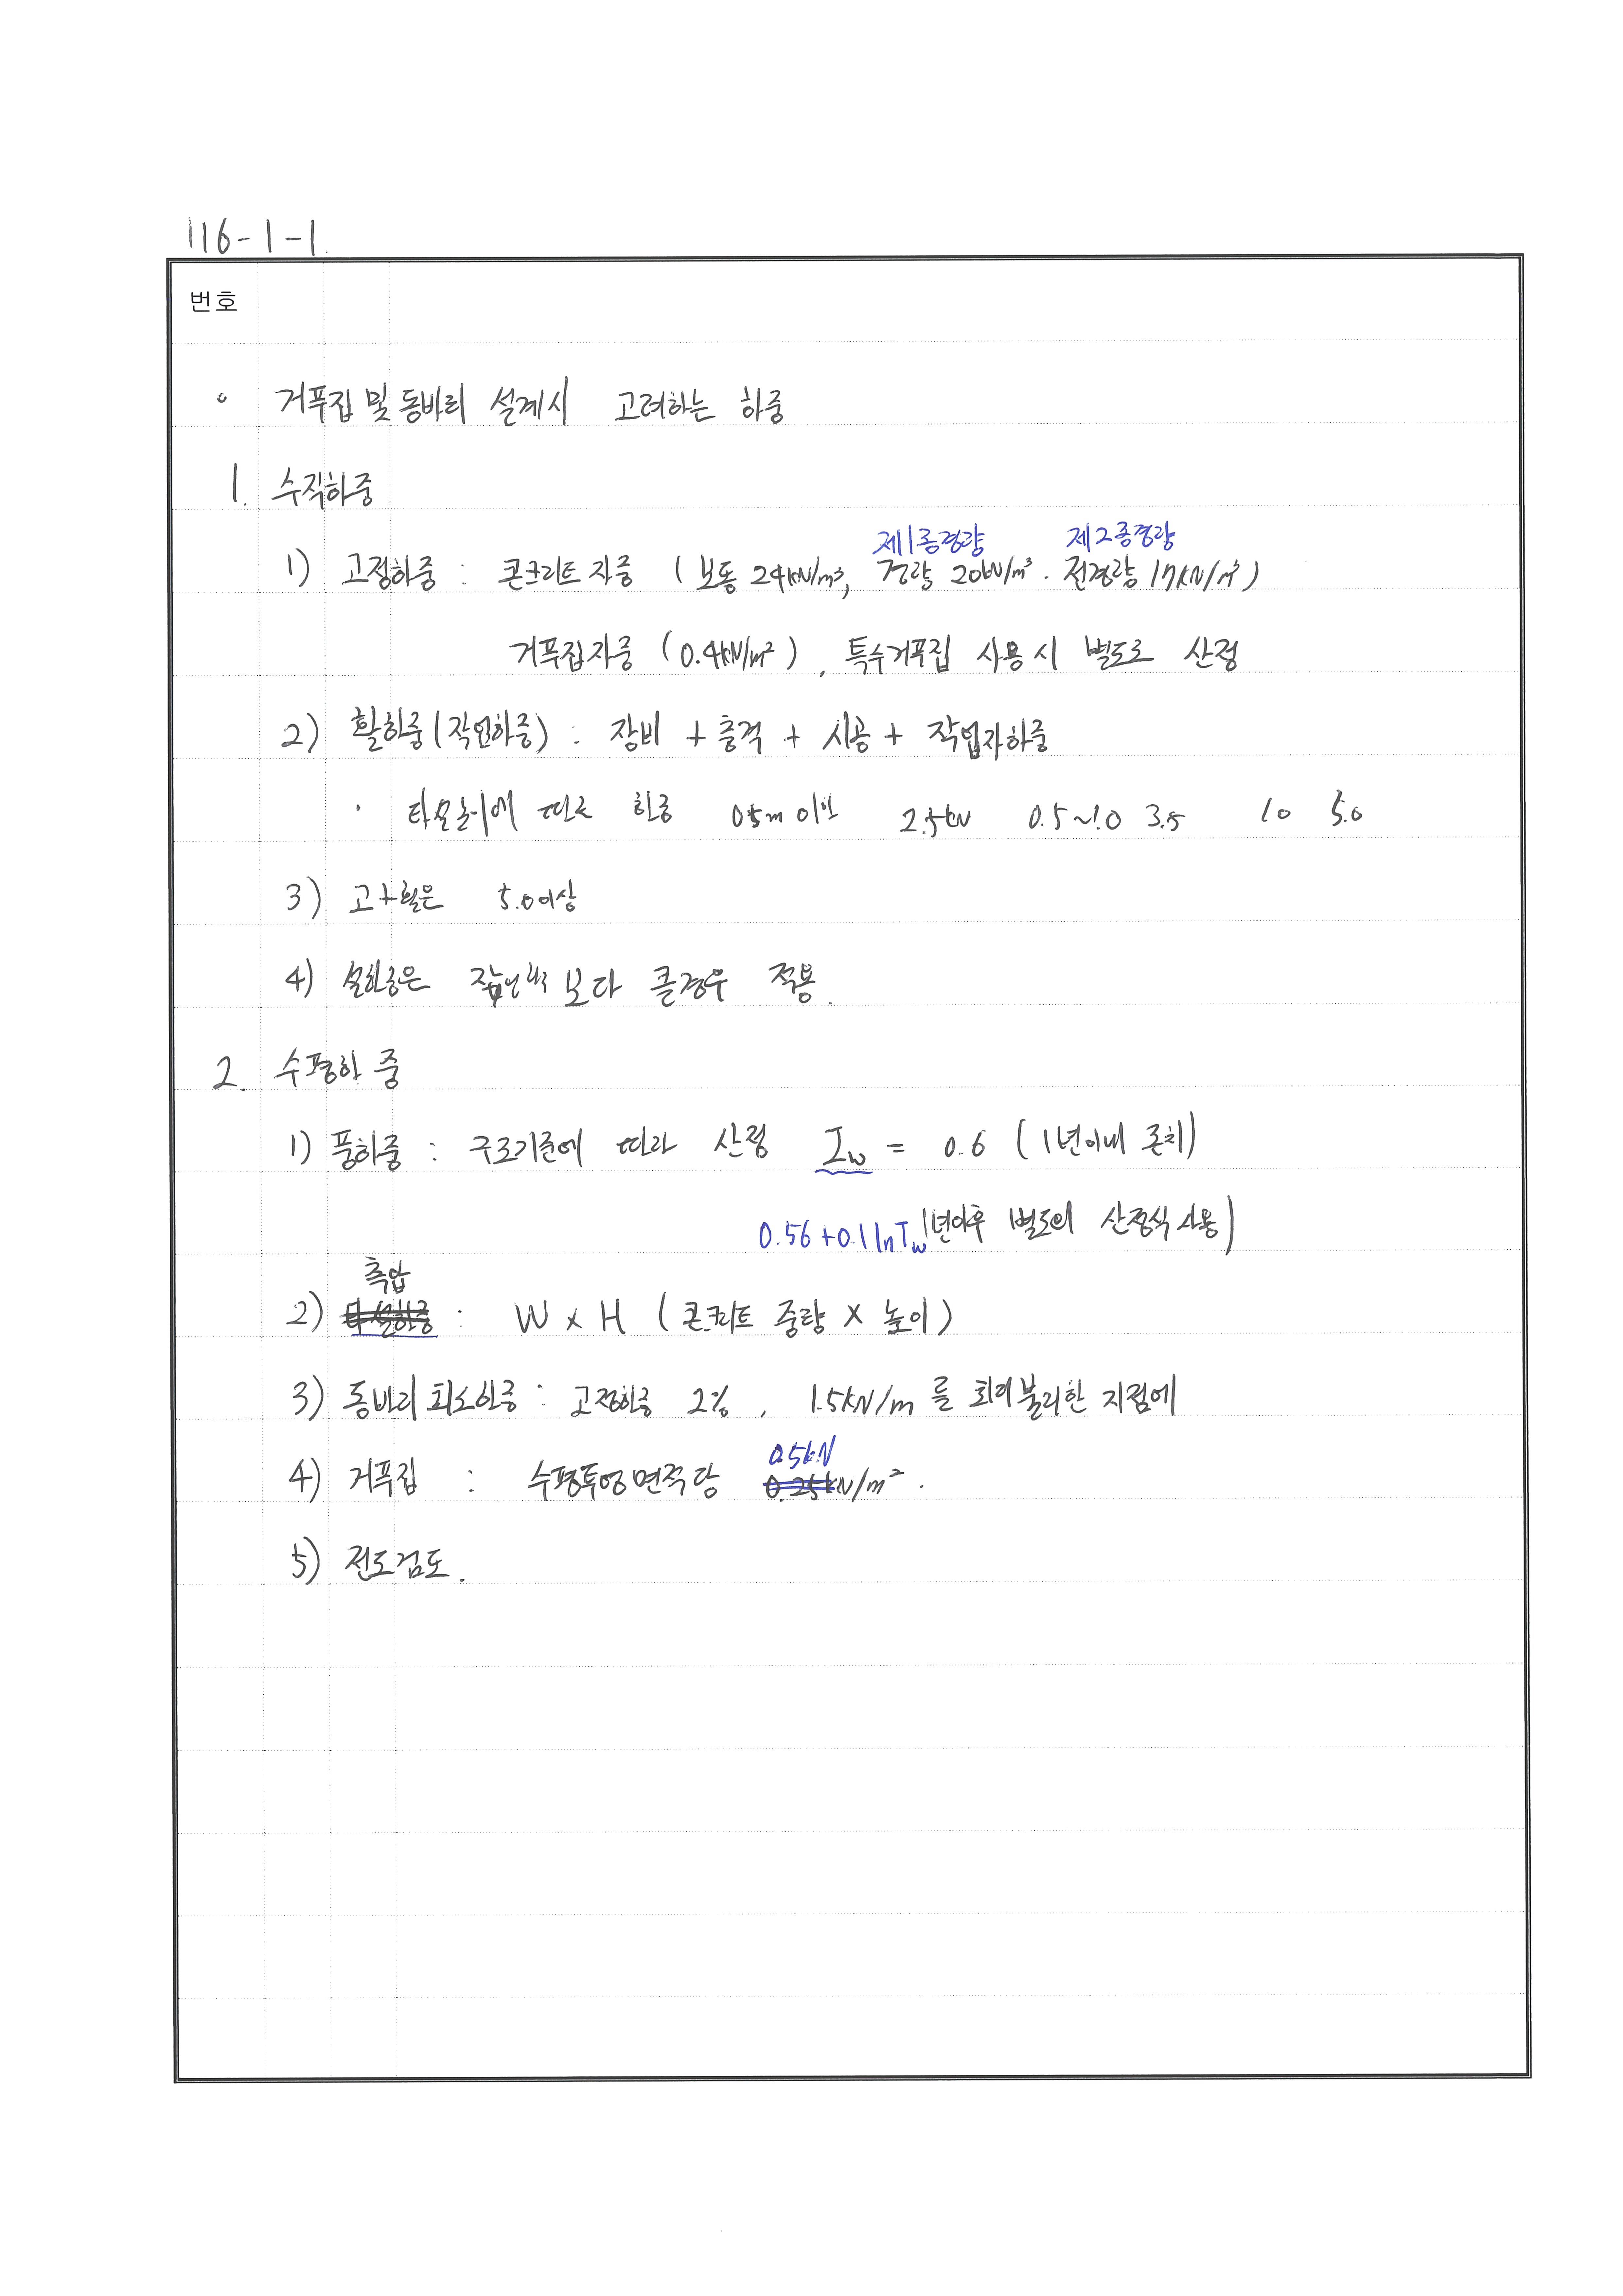 116-1-1.
번호
° 거푸집 및 동바리 설계시 고려하는 하중
1. 수직하중
제1종경량 제2종경량
1) 고정하중 : 콘크리트 자중 ( 보통 24kN/m³, 경량 20kN/m³. 전경량 17kN/m³)
거푸집자중 (0.4kN/m²), 특수거푸집 사용시 별도로 산정
2) 활하중(작업하중) : 장비 + 충격 + 시공 + 작업자하중
· 타설높이에 따른 하중 0.5m 이만 2.5kN 0.5~1.0 3.5 1.0 5.0
3) 고+활은 5.0이상
4) 설하중은 보다 클경우 적용.
2. 수평하중
1) 풍하중 : 구조기준에 따라 산정 Iw = 0.6 (1년이내 존치)
0.56+0.1lnTw 1년이후 별도의 산정식 사용)
측압
2) 타설하중 : W x H (콘크리트 중량 x 높이)
3) 동바리 최소하중 : 고정하중 2%, 1.5kN/m 를 최더불리한 지점에
0.5kN
4) 거푸집 : 수평투영면적당 0.25kN/m².
5) 전도검토.